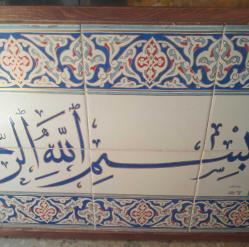 بِسْمِ اللَّهِ الرَّح